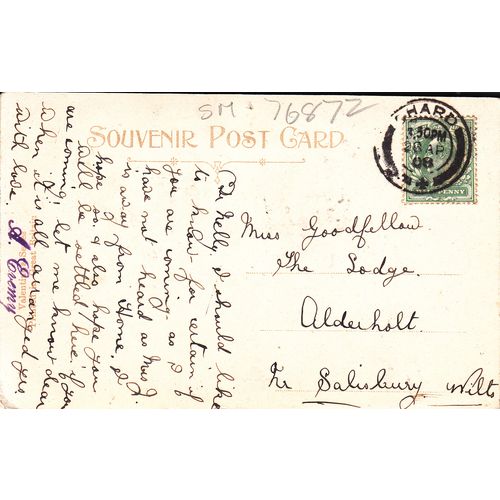 SM · 76872
SOUVENIR POST CARD
CHARD
3.30PM
26 AP
08
PENNY
Miss Goodfellow
The Lodge.
Alderholt.
Nr Salisbury Wilts
Dr Nelly, I should like
to know for certain if
you are coming as I
have not heard as Mrs J.
is away from Home, I
hope so. I also hope you
will be settled here. if you
are coming let me know dear
when it is all arranged yrs
with love, A.
Valentine